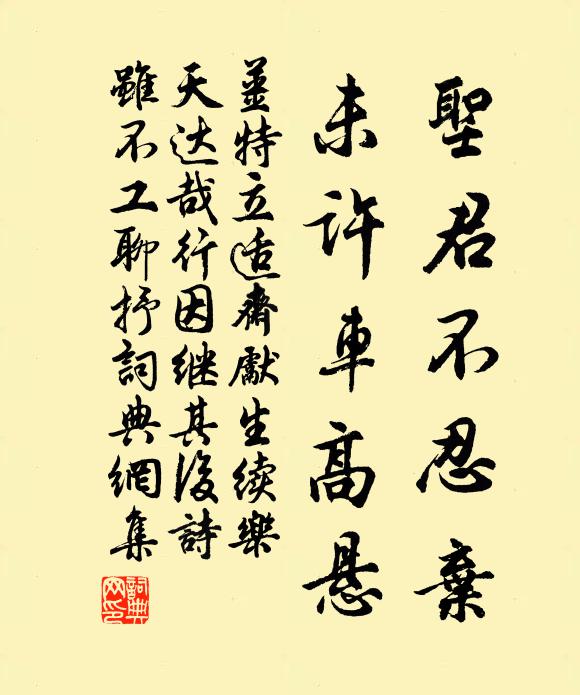 聖君不忍棄
未許車高悬
薑特立适齋獻生续樂
天达哉行因继其後詩
雖不工聊抒詞典網集
詞典
网印